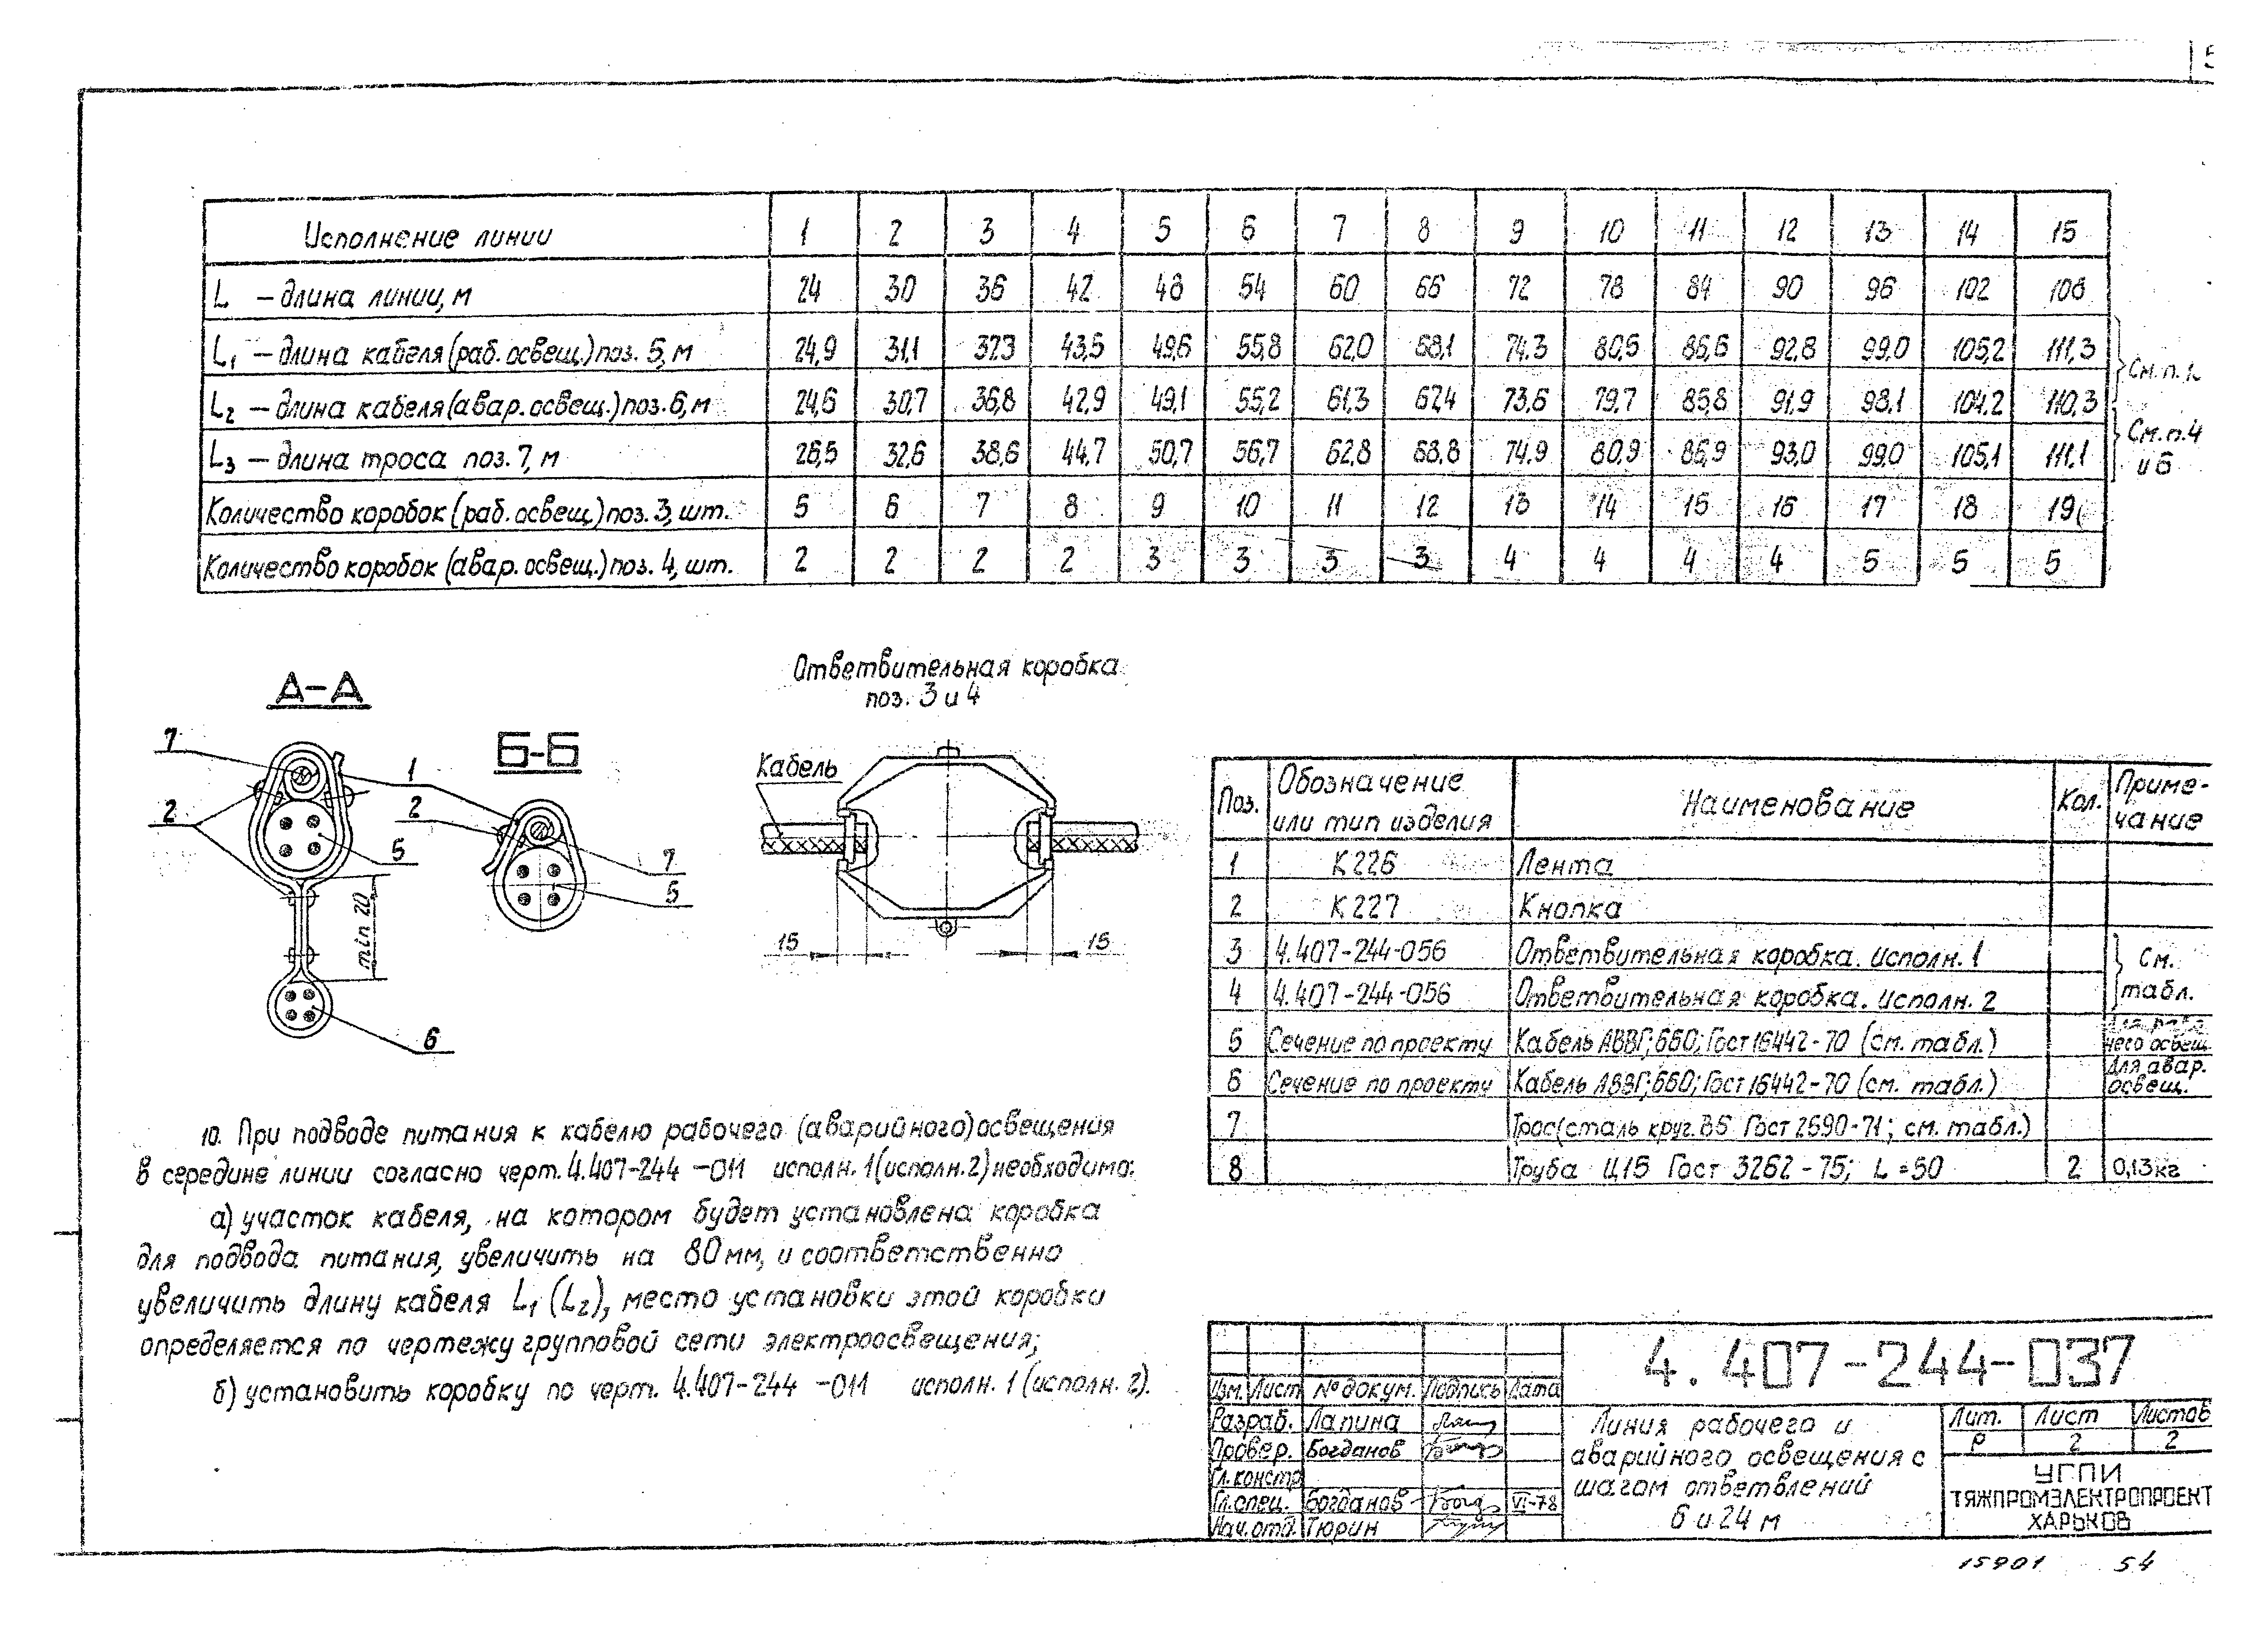 Исполнение линии 1 2 3 4 5 6 7 8 9 10 11 12 13 14 15
L – длина линии, м 24 30 36 42 48 54 60 66 72 78 84 90 96 102 108
L1 – длина кабеля (раб. освещ.) поз. 5, м 24,9 31,1 37,3 43,5 49,6 55,8 62,0 68,1 74,3 80,5 86,6 92,8 99,0 105,2 111,3
См. п.
L2 – длина кабеля (авар. освещ.) поз. 6, м 24,6 30,7 36,8 42,9 49,1 55,2 61,3 67,4 73,6 79,7 85,8 91,9 98,1 104,2 110,3
L3 – длина троса поз. 7, м 26,5 32,6 38,6 44,7 50,7 56,7 62,8 68,8 74,9 80,9 86,9 93,0 99,0 105,1 111,1
См. п. 4
и 6
Количество коробок (раб. освещ.) поз. 3, шт. 5 6 7 8 9 10 11 12 13 14 15 16 17 18 19
Количество коробок (авар. освещ.) поз. 4, шт. 2 2 2 2 3 3 3 3 4 4 4 4 5 5 5
А-А
7
1
2
2
5
min 20
6
Б-Б
7
5
Ответвительная коробка
поз. 3 и 4
Кабель
15
15
Поз. Обозначение или тип изделия Наименование Кол. Примечание
1 К226 Лента
2 К227 Кнопка
3 4.407-244-056 Ответвительная коробка. исполн. 1
См. табл.
4 4.407-244-056 Ответвительная коробка. исполн. 2
5 Сечение по проекту Кабель АВВГ; 660; Гост 16442-70 (см. табл.) чего освещ.
6 Сечение по проекту Кабель АВВГ; 660; Гост 16442-70 (см. табл.) Для авар. освещ.
7 Трос (сталь круг. В6 Гост 2590-71; см. табл.)
8 Труба Ц15 Гост 3262-75; L=50 2 0,13 кг
10. При подводе питания к кабелю рабочего (аварийного) освещения
в середине линии согласно черт. 4.407-244-011 исполн. 1 (исполн. 2) необходимо:
а) участок кабеля, на котором будет установлена коробка
для подвода питания, увеличить на 80 мм, и соответственно
увеличить длину кабеля L1 (L2), место установки этой коробки
определяется по чертежу групповой сети электроосвещения;
б) установить коробку по черт. 4.407-244-011 исполн. 1 (исполн. 2).
4.407-244-037
Изм. Лист № докум. Подпись Дата
Разраб. Лапина
Провер. Богданов
Гл. констр
Гл. спец. Богданов VI-78
Нач. отд. Тюрин
Линия рабочего и
аварийного освещения с
шагом ответвлений
6 и 24 м
Лит. Лист Листов
Р 2 2
УГПИ
ТЯЖПРОМЭЛЕКТРОПРОЕКТ
ХАРЬКОВ
15901 54